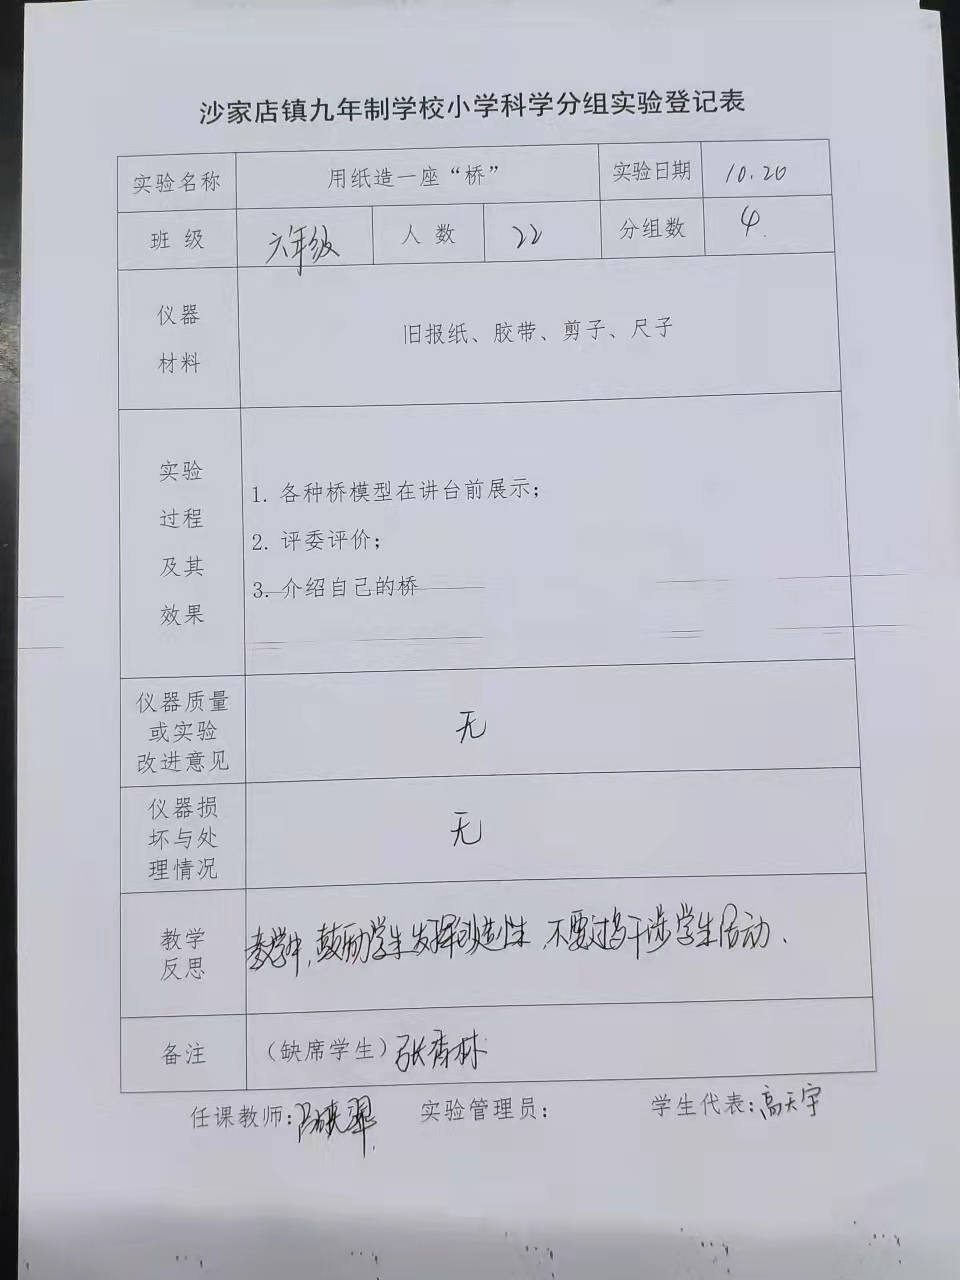 沙家店镇九年制学校小学科学分组实验登记表
实验名称 用纸造一座“桥” 实验日期 10.20
班 级 六年级 人 数 22 分组数 4.
仪器
材料
旧报纸、胶带、剪子、尺子
实验
过程
及其
效果
1. 各种桥模型在讲台前展示；
2. 评委评价；
3. 介绍自己的桥
仪器质量
或实验
改进意见
无
仪器损
坏与处
理情况
无
教学
反思
教学中，鼓励学生发挥创造性，不要过多干涉学生活动、
备注 （缺席学生）张香林
任课教师： 实验管理员： 学生代表：高天宇